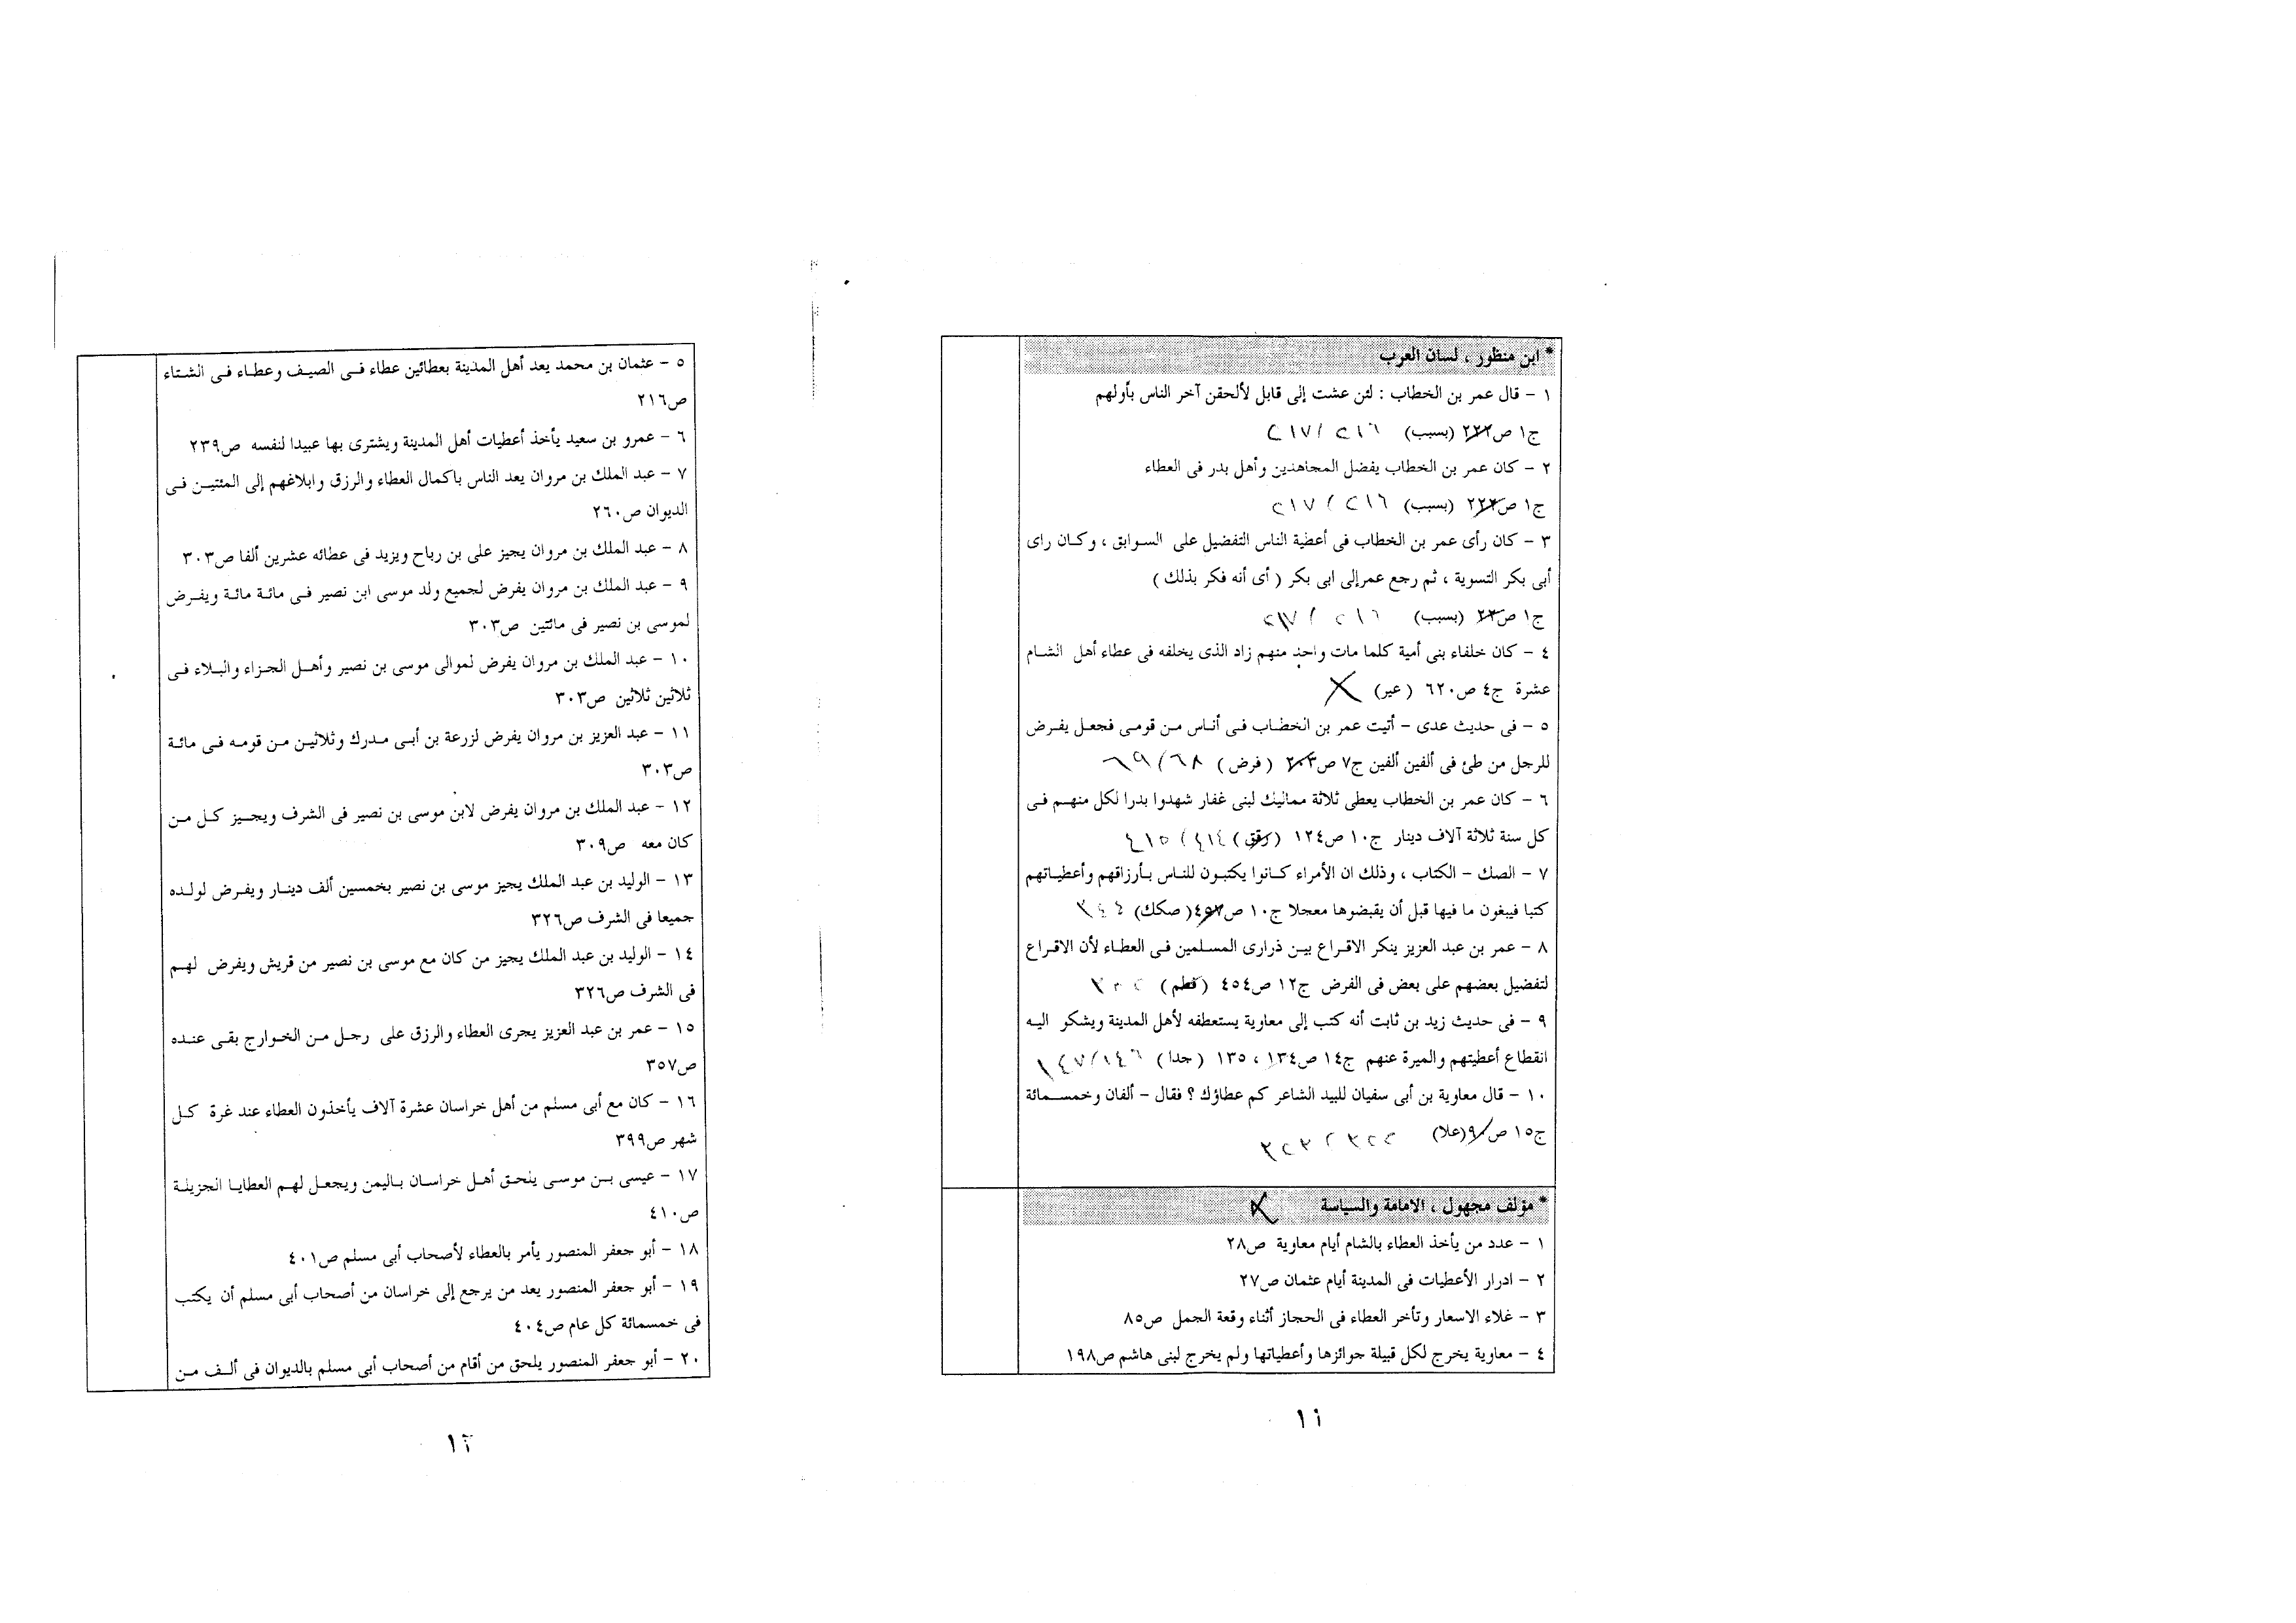 * ابن منظور ، لسان العرب
١ – قال عمر بن الخطاب : لئن عشت إلى قابل لألحقن آخر الناس بأولهم
ج١ ص٢٢٢ (بسبب) ٢١٦ / ٢١٧
٢ – كان عمر بن الخطاب يفضل المجاهدين وأهل بدر فى العطاء
ج١ ص٢٢٢ (بسبب) ٢١٦ / ٢١٧
٣ – كان رأى عمر بن الخطاب فى أعطية الناس التفضيل على السوابق ، وكان راى
أبى بكر التسوية ، ثم رجع عمرإلى ابى بكر ( أى أنه فكر بذلك )
ج١ ص٢٢ (بسبب) ٢١٦ / ٢١٧
٤ – كان خلفاء بنى أمية كلما مات واحد منهم زاد الذى يخلفه فى عطاء أهل الشام
عشرة ج٤ ص٦٢٠ (عير)
٥ – فى حديث عدى – أتيت عمر بن الخطاب فى أناس من قومى فجعل يفرض
للرجل من طئ فى ألفين ألفين ج٧ ص٢٠٣ ( فرض ) ٦٨ / ٦٩
٦ – كان عمر بن الخطاب يعطى ثلاثة مماليك لبنى غفار شهدوا بدرا لكل منهم فى
كل سنة ثلاثة آلاف دينار ج١٠ ص١٢٤ (رقق) ٤١٤ / ٤١٥
٧ – الصك – الكتاب ، وذلك ان الأمراء كانوا يكتبون للناس بأرزاقهم وأعطياتهم
كتبا فيبغون ما فيها قبل أن يقبضوها معجلا ج١٠ ص٤٥٧( صكك) ٣٤٤
٨ – عمر بن عبد العزيز ينكر الاقراع بين ذرارى المسلمين فى العطاء لأن الاقراع
لتفضيل بعضهم على بعض فى الفرض ج١٢ ص٤٥٤ (فطم)
٩ – فى حديث زيد بن ثابت أنه كتب إلى معاوية يستعطفه لأهل المدينة ويشكو اليه
انقطاع أعطيتهم والميرة عنهم ج١٤ ص١٣٤ ، ١٣٥ (جدا) ١٤٦ / ١٤٧
١٠ – قال معاوية بن أبى سفيان للبيد الشاعر كم عطاؤك ؟ فقال – ألفان وخمسمائة
ج١٥ ص٩٠(علا) ٣٢٢ / ٣٢٣
* مؤلف مجهول ، الامامة والسياسة
١ – عدد من يأخذ العطاء بالشام أيام معاوية ص٢٨
٢ – ادرار الأعطيات فى المدينة أيام عثمان ص٢٧
٣ – غلاء الاسعار وتأخر العطاء فى الحجاز أثناء وقعة الجمل ص٨٥
٤ – معاوية يخرج لكل قبيلة جوائزها وأعطياتها ولم يخرج لبنى هاشم ص١٩٨
٥ – عثمان بن محمد يعد أهل المدينة بعطائين عطاء فى الصيف وعطاء فى الشتاء
ص٢١٦
٦ – عمرو بن سعيد يأخذ أعطيات أهل المدينة ويشترى بها عبيدا لنفسه ص٢٣٩
٧ – عبد الملك بن مروان يعد الناس باكمال العطاء والرزق وابلاغهم إلى المئتين فى
الديوان ص٢٦٠
٨ – عبد الملك بن مروان يجيز على بن رباح ويزيد فى عطائه عشرين ألفا ص٣٠٣
٩ – عبد الملك بن مروان يفرض لجميع ولد موسى ابن نصير فى مائة مائة ويفرض
لموسى بن نصير فى مائتين ص٣٠٣
١٠ – عبد الملك بن مروان يفرض لموالى موسى بن نصير وأهل الجزاء والبلاء فى
ثلاثين ثلاثين ص٣٠٣
١١ – عبد العزيز بن مروان يفرض لزرعة بن أبى مدرك وثلاثين من قومه فى مائة
ص٣٠٣
١٢ – عبد الملك بن مروان يفرض لابن موسى بن نصير فى الشرف ويجيز كل من
كان معه ص٣٠٩
١٣ – الوليد بن عبد الملك يجيز موسى بن نصير بخمسين ألف دينار ويفرض لولده
جميعا فى الشرف ص٣٢٦
١٤ – الوليد بن عبد الملك يجيز من كان مع موسى بن نصير من قريش ويفرض لهم
فى الشرف ص٣٢٦
١٥ – عمر بن عبد العزيز يجرى العطاء والرزق على رجل من الخوارج بقى عنده
ص٣٥٧
١٦ – كان مع أبى مسلم من أهل خراسان عشرة آلاف يأخذون العطاء عند غرة كل
شهر ص٣٩٩
١٧ – عيسى بن موسى يلحق أهل خراسان باليمن ويجعل لهم العطايا الجزيلة
ص٤١٠
١٨ – أبو جعفر المنصور يأمر بالعطاء لأصحاب أبى مسلم ص٤٠١
١٩ – أبو جعفر المنصور يعد من يرجع إلى خراسان من أصحاب أبى مسلم أن يكتب
فى خمسمائة كل عام ص٤٠٤
٢٠ – أبو جعفر المنصور يلحق من أقام من أصحاب أبى مسلم بالديوان فى ألف من